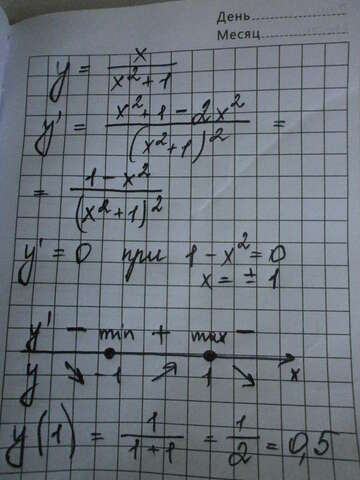 День
Месяц
y = x/(x²+1)
y' = (x²+1-2x²)/(x²+1)² =
= (1-x²)/(x²+1)²
y' = 0 при 1-x²=0
x = ±1
y' - min + max -
y ↘ -1 ↗ 1 ↘ x
y(1) = 1/(1+1) = 1/2 = 0,5